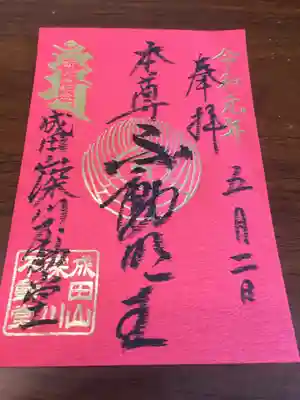 令和元年
五月二日
奉拝
本尊不動明王
成田山深川不動堂
成田山
深川
不動堂